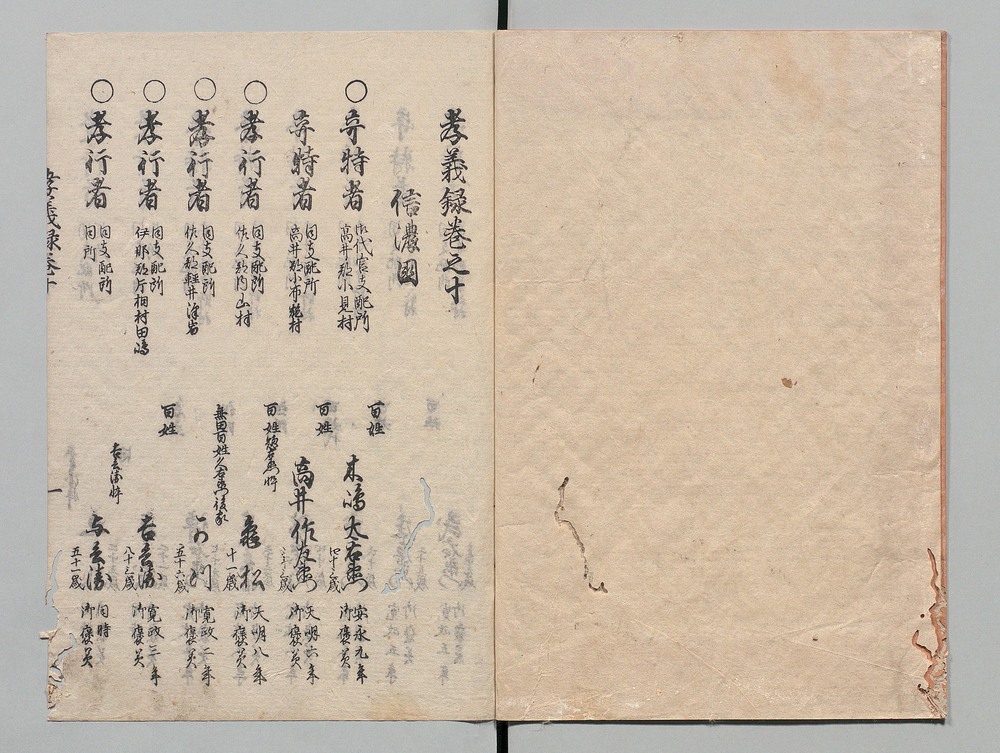 孝義録巻之十
信濃国
○奇特者 御代官支配所 高井郡小見村 百姓 木嶋太右衛門 四十三歳 安永九年 御褒美
奇特者 同支配所 高井郡小布施村 百姓 高井作左衛門 天明六年 御褒美
○孝行者 同支配所 佐久郡内山村 百姓惣右衛門忰 亀松 十一歳 天明八年 御褒美
○孝行者 同支配所 佐久郡軽井沢宿 無田百姓久右衛門後家 五十六歳 寛政二年 御褒美
○孝行者 同支配所 伊那郡片桐村田嶋 百姓 吉兵衛 八十三歳 寛政三年 御褒美
○孝行者 同支配所 同所 吉兵衛忰 与兵衛 五十一歳 同時 御褒美
孝義録巻十
一